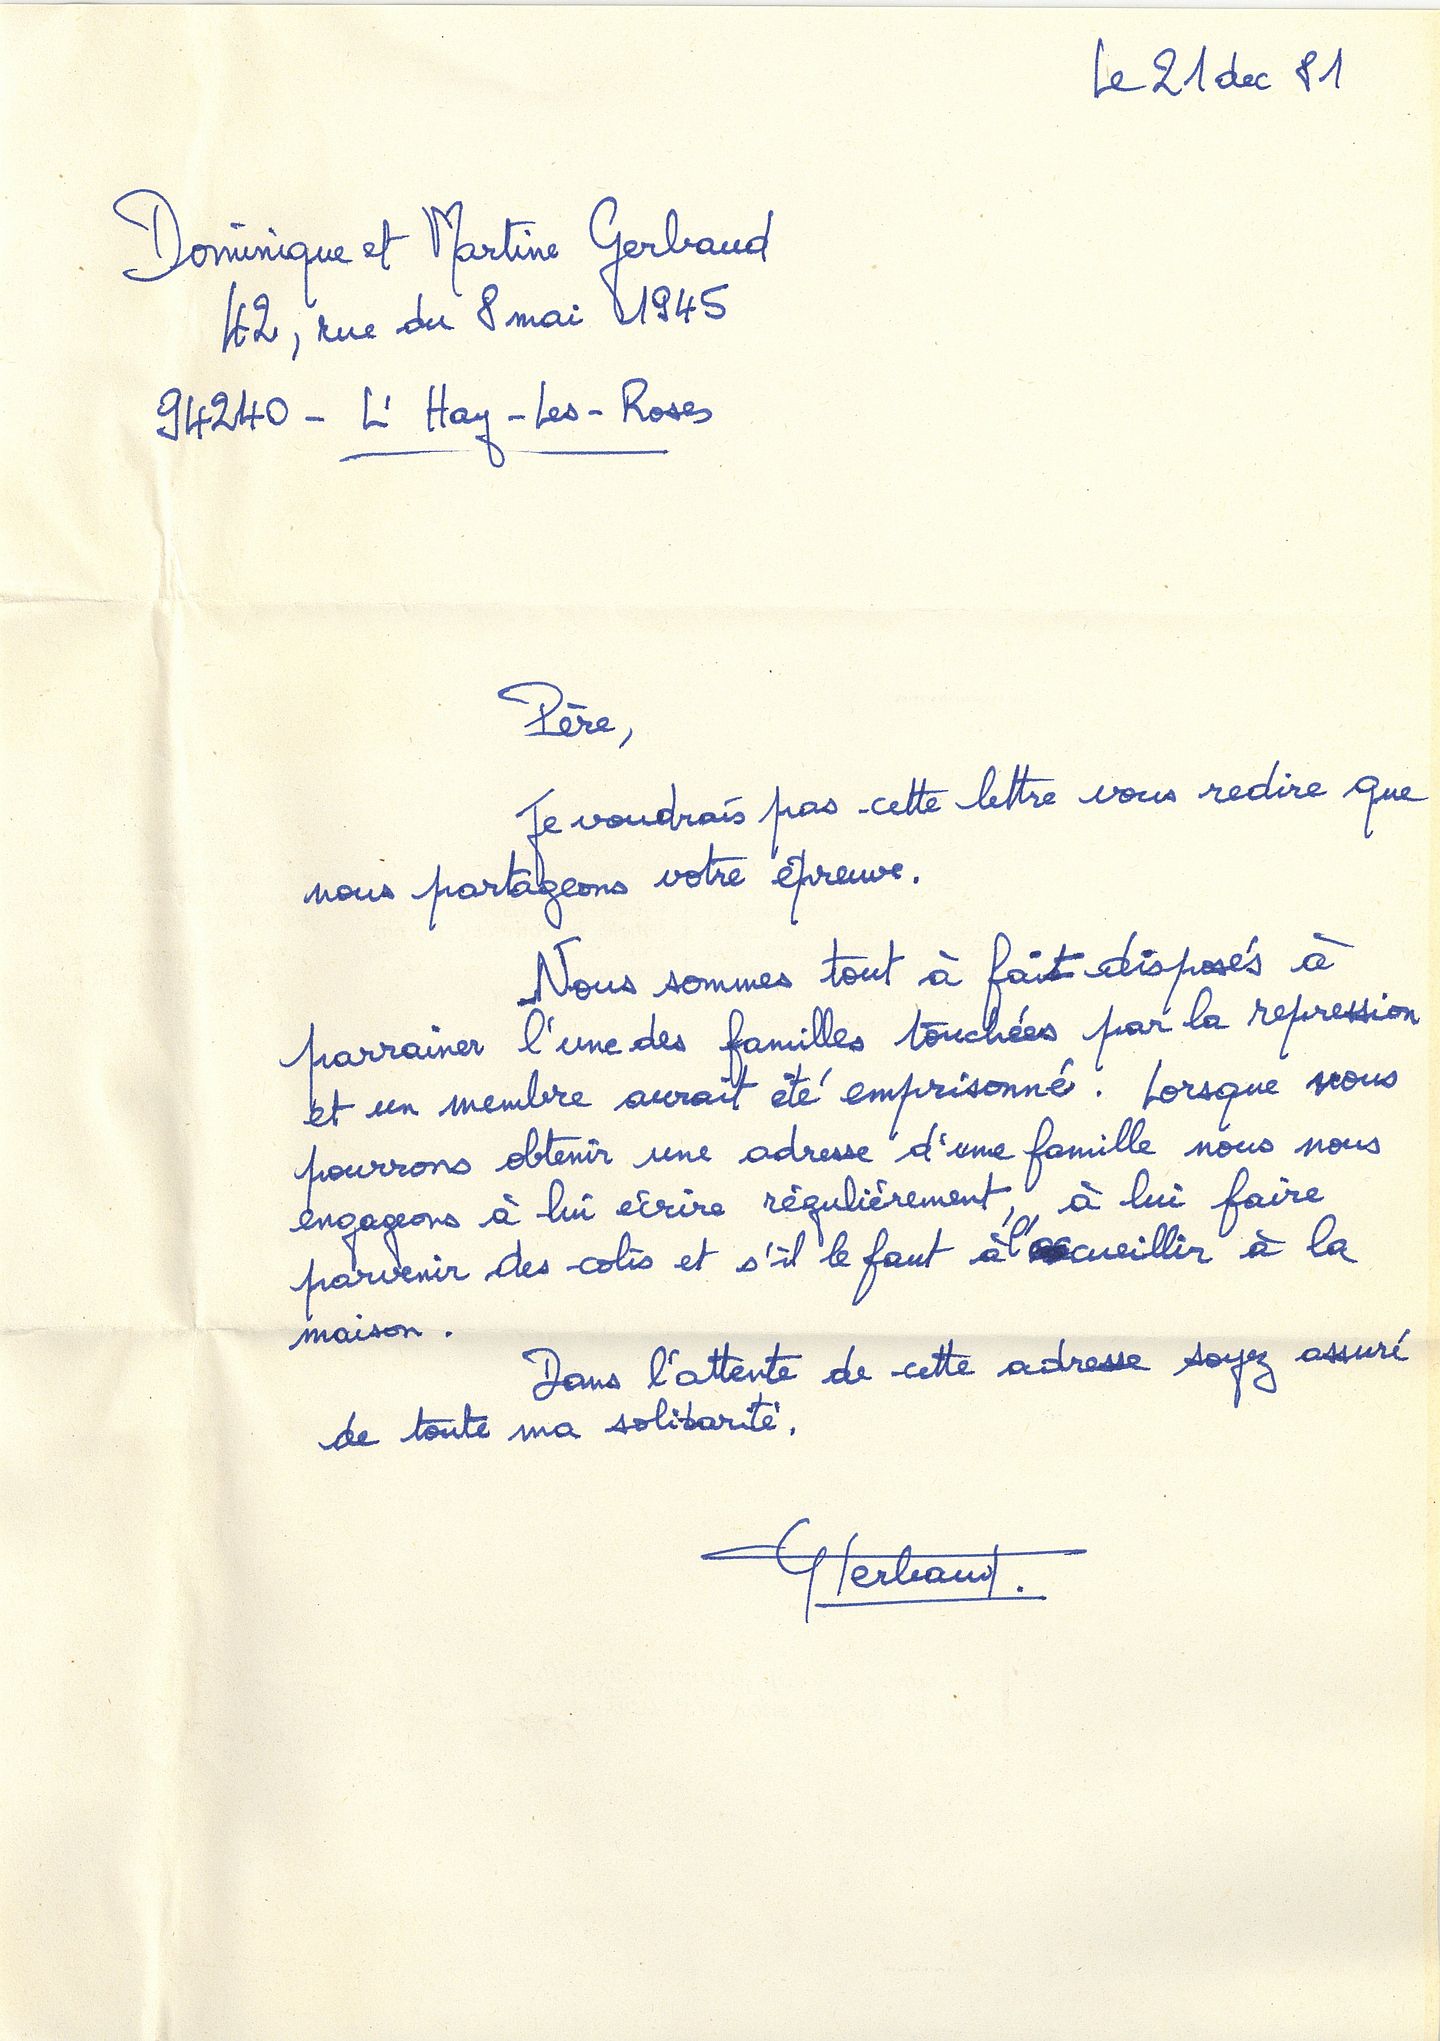 Le 21 dec 81
Dominique et Martine Gerbaud
42, rue du 8 mai 1945
94240 - L' Hay-Les-Roses
Père,
Je voudrais pas cette lettre vous redire que
nous partageons votre épreuve.
Nous sommes tout à fait disposés à
parrainer l'une des familles touchées par la repression
et un membre aurait été emprisonné. Lorsque nous
pourrons obtenir une adresse d'une famille nous nous
engageons à lui écrire régulièrement, à lui faire
parvenir des colis et s'il le faut à l'accueillir à la
maison.
Dans l'attente de cette adresse soyez assuré
de toute ma solidarité.
Gerbaud.